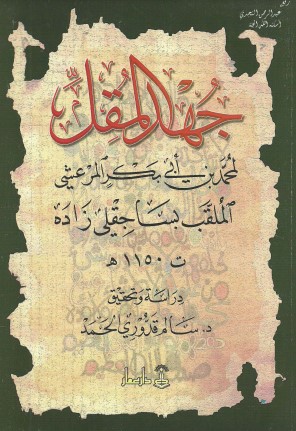 جُهْدُ المُقِلِّ
لمحمد بن أبي بكر المرعشي
الملقب بساجقلي زاده
ت ١١٥٠ هـ
دراسة وتحقيق
د. سالم قدوري الحمد
دار عمار